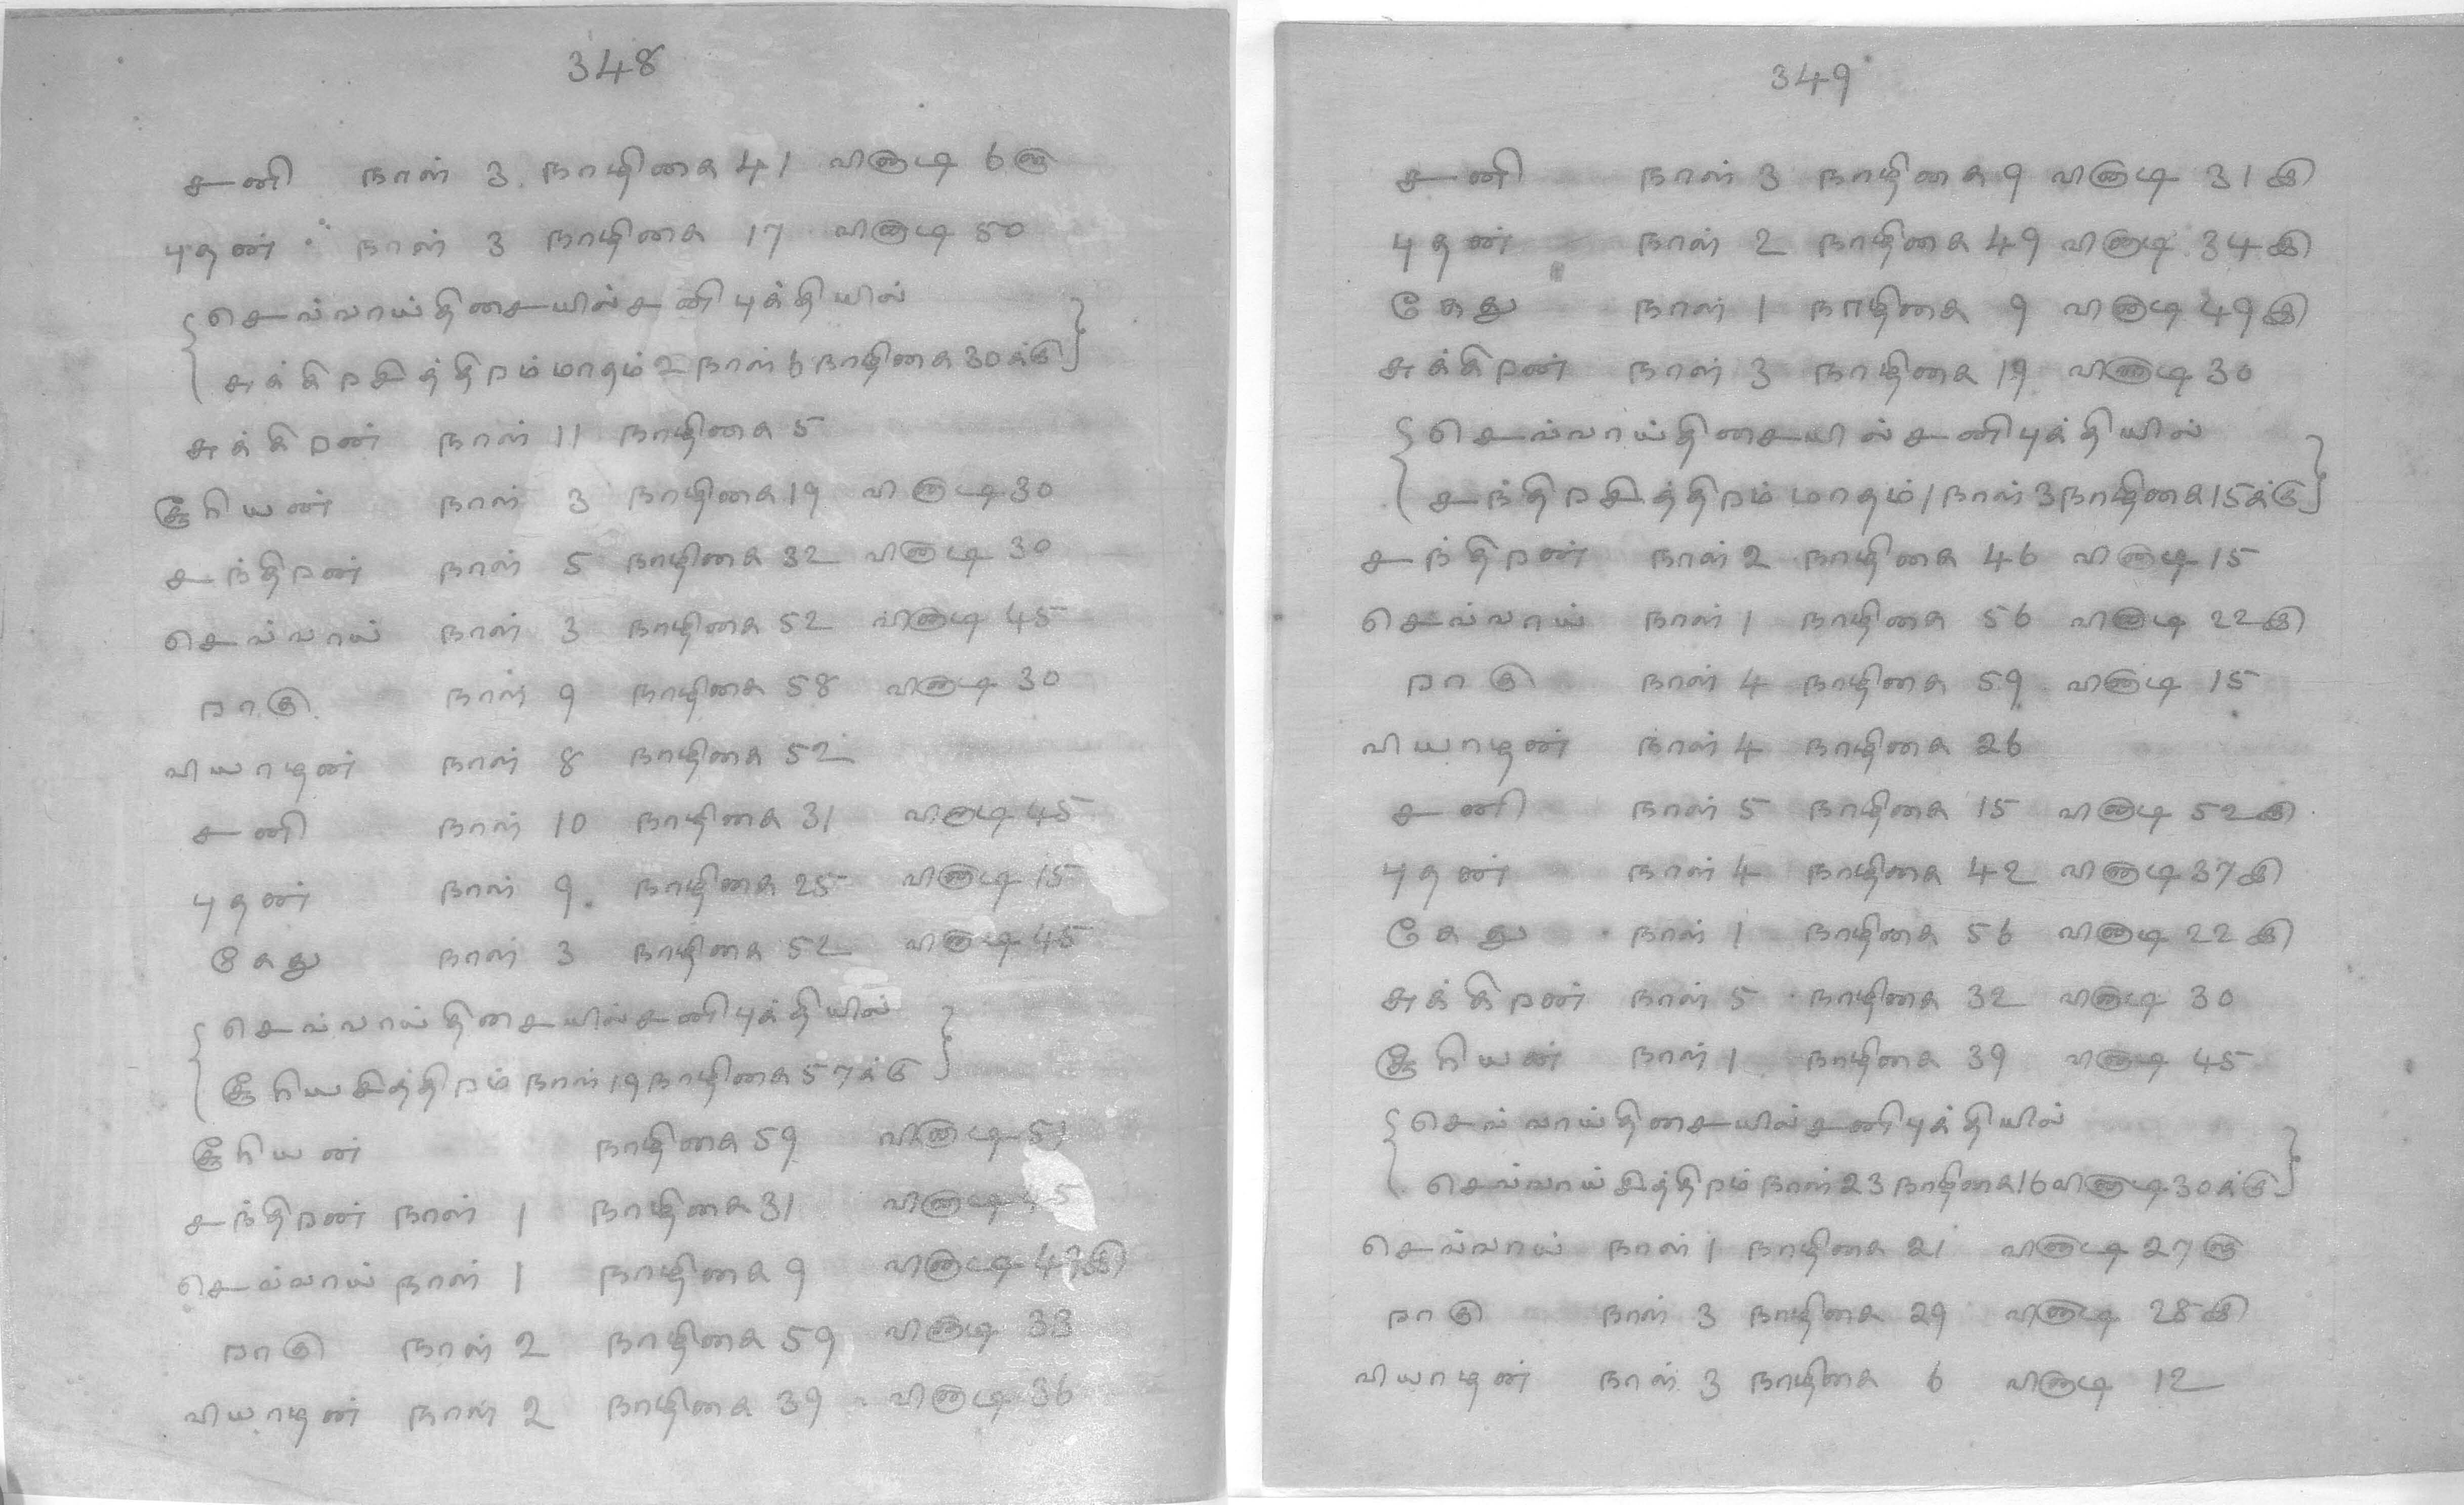 348
சனி நாள் 3 நாழிகை 41 வினாடி 6௵
புதன் நாள் 3 நாழிகை 17 வினாடி 50
{செவ்வாய்திசையில்சனிபுக்தியில்
சுக்கிறசித்திறம் மாதம் 2 நாள் 6 நாழிகை 30க்கு}
சுக்கிறன் நாள் 11 நாழிகை 5
சூரியன் நாள் 3 நாழிகை 19 வினாடி 30
சந்திறன் நாள் 5 நாழிகை 32 வினாடி 30
செவ்வாய் நாள் 3 நாழிகை 52 வினாடி 45
றாகு நாள் 9 நாழிகை 58 வினாடி 30
வியாழன் நாள் 8 நாழிகை 52
சனி நாள் 10 நாழிகை 31 வினாடி 45
புதன் நாள் 9 நாழிகை 25 வினாடி 15
கேது நாள் 3 நாழிகை 52 வினாடி 45
{செவ்வாய்திசையில்சனிபுக்தியில்
சூரியசித்திறம் நாள் 19 நாழிகை 57க்கு}
சூரியன் நாழிகை 59 வினாடி 51
சந்திறன் நாள் 1 நாழிகை 31 வினாடி 45
செவ்வாய் நாள் 1 நாழிகை 9 வினாடி 49இ
றாகு நாள் 2 நாழிகை 59 வினாடி 33
வியாழன் நாள் 2 நாழிகை 39 வினாடி 36
349
சனி நாள் 3 நாழிகை 9 வினாடி 31இ
புதன் நாள் 2 நாழிகை 49 வினாடி 34இ
கேது நாள் 1 நாழிகை 9 வினாடி 49இ
சுக்கிறன் நாள் 3 நாழிகை 19 வினாடி 30
{செவ்வாய்திசையில்சனிபுக்தியில்
சந்திறசித்திறம் மாதம் 1 நாள் 3 நாழிகை 15க்கு}
சந்திறன் நாள் 2 நாழிகை 46 வினாடி 15
செவ்வாய் நாள் 1 நாழிகை 56 வினாடி 22இ
றாகு நாள் 4 நாழிகை 59 வினாடி 15
வியாழன் நாள் 4 நாழிகை 26
சனி நாள் 5 நாழிகை 15 வினாடி 52இ
புதன் நாள் 4 நாழிகை 42 வினாடி 37இ
கேது நாள் 1 நாழிகை 56 வினாடி 22இ
சுக்கிறன் நாள் 5 நாழிகை 32 வினாடி 30
சூரியன் நாள் 1 நாழிகை 39 வினாடி 45
{செவ்வாய்திசையில்சனிபுக்தியில்
செவ்வாய்சித்திறம் நாள் 23 நாழிகை 16 வினாடி 30க்கு}
செவ்வாய் நாள் 1 நாழிகை 21 வினாடி 27
றாகு நாள் 3 நாழிகை 29 வினாடி 28இ
வியாழன் நாள் 3 நாழிகை 6 வினாடி 12